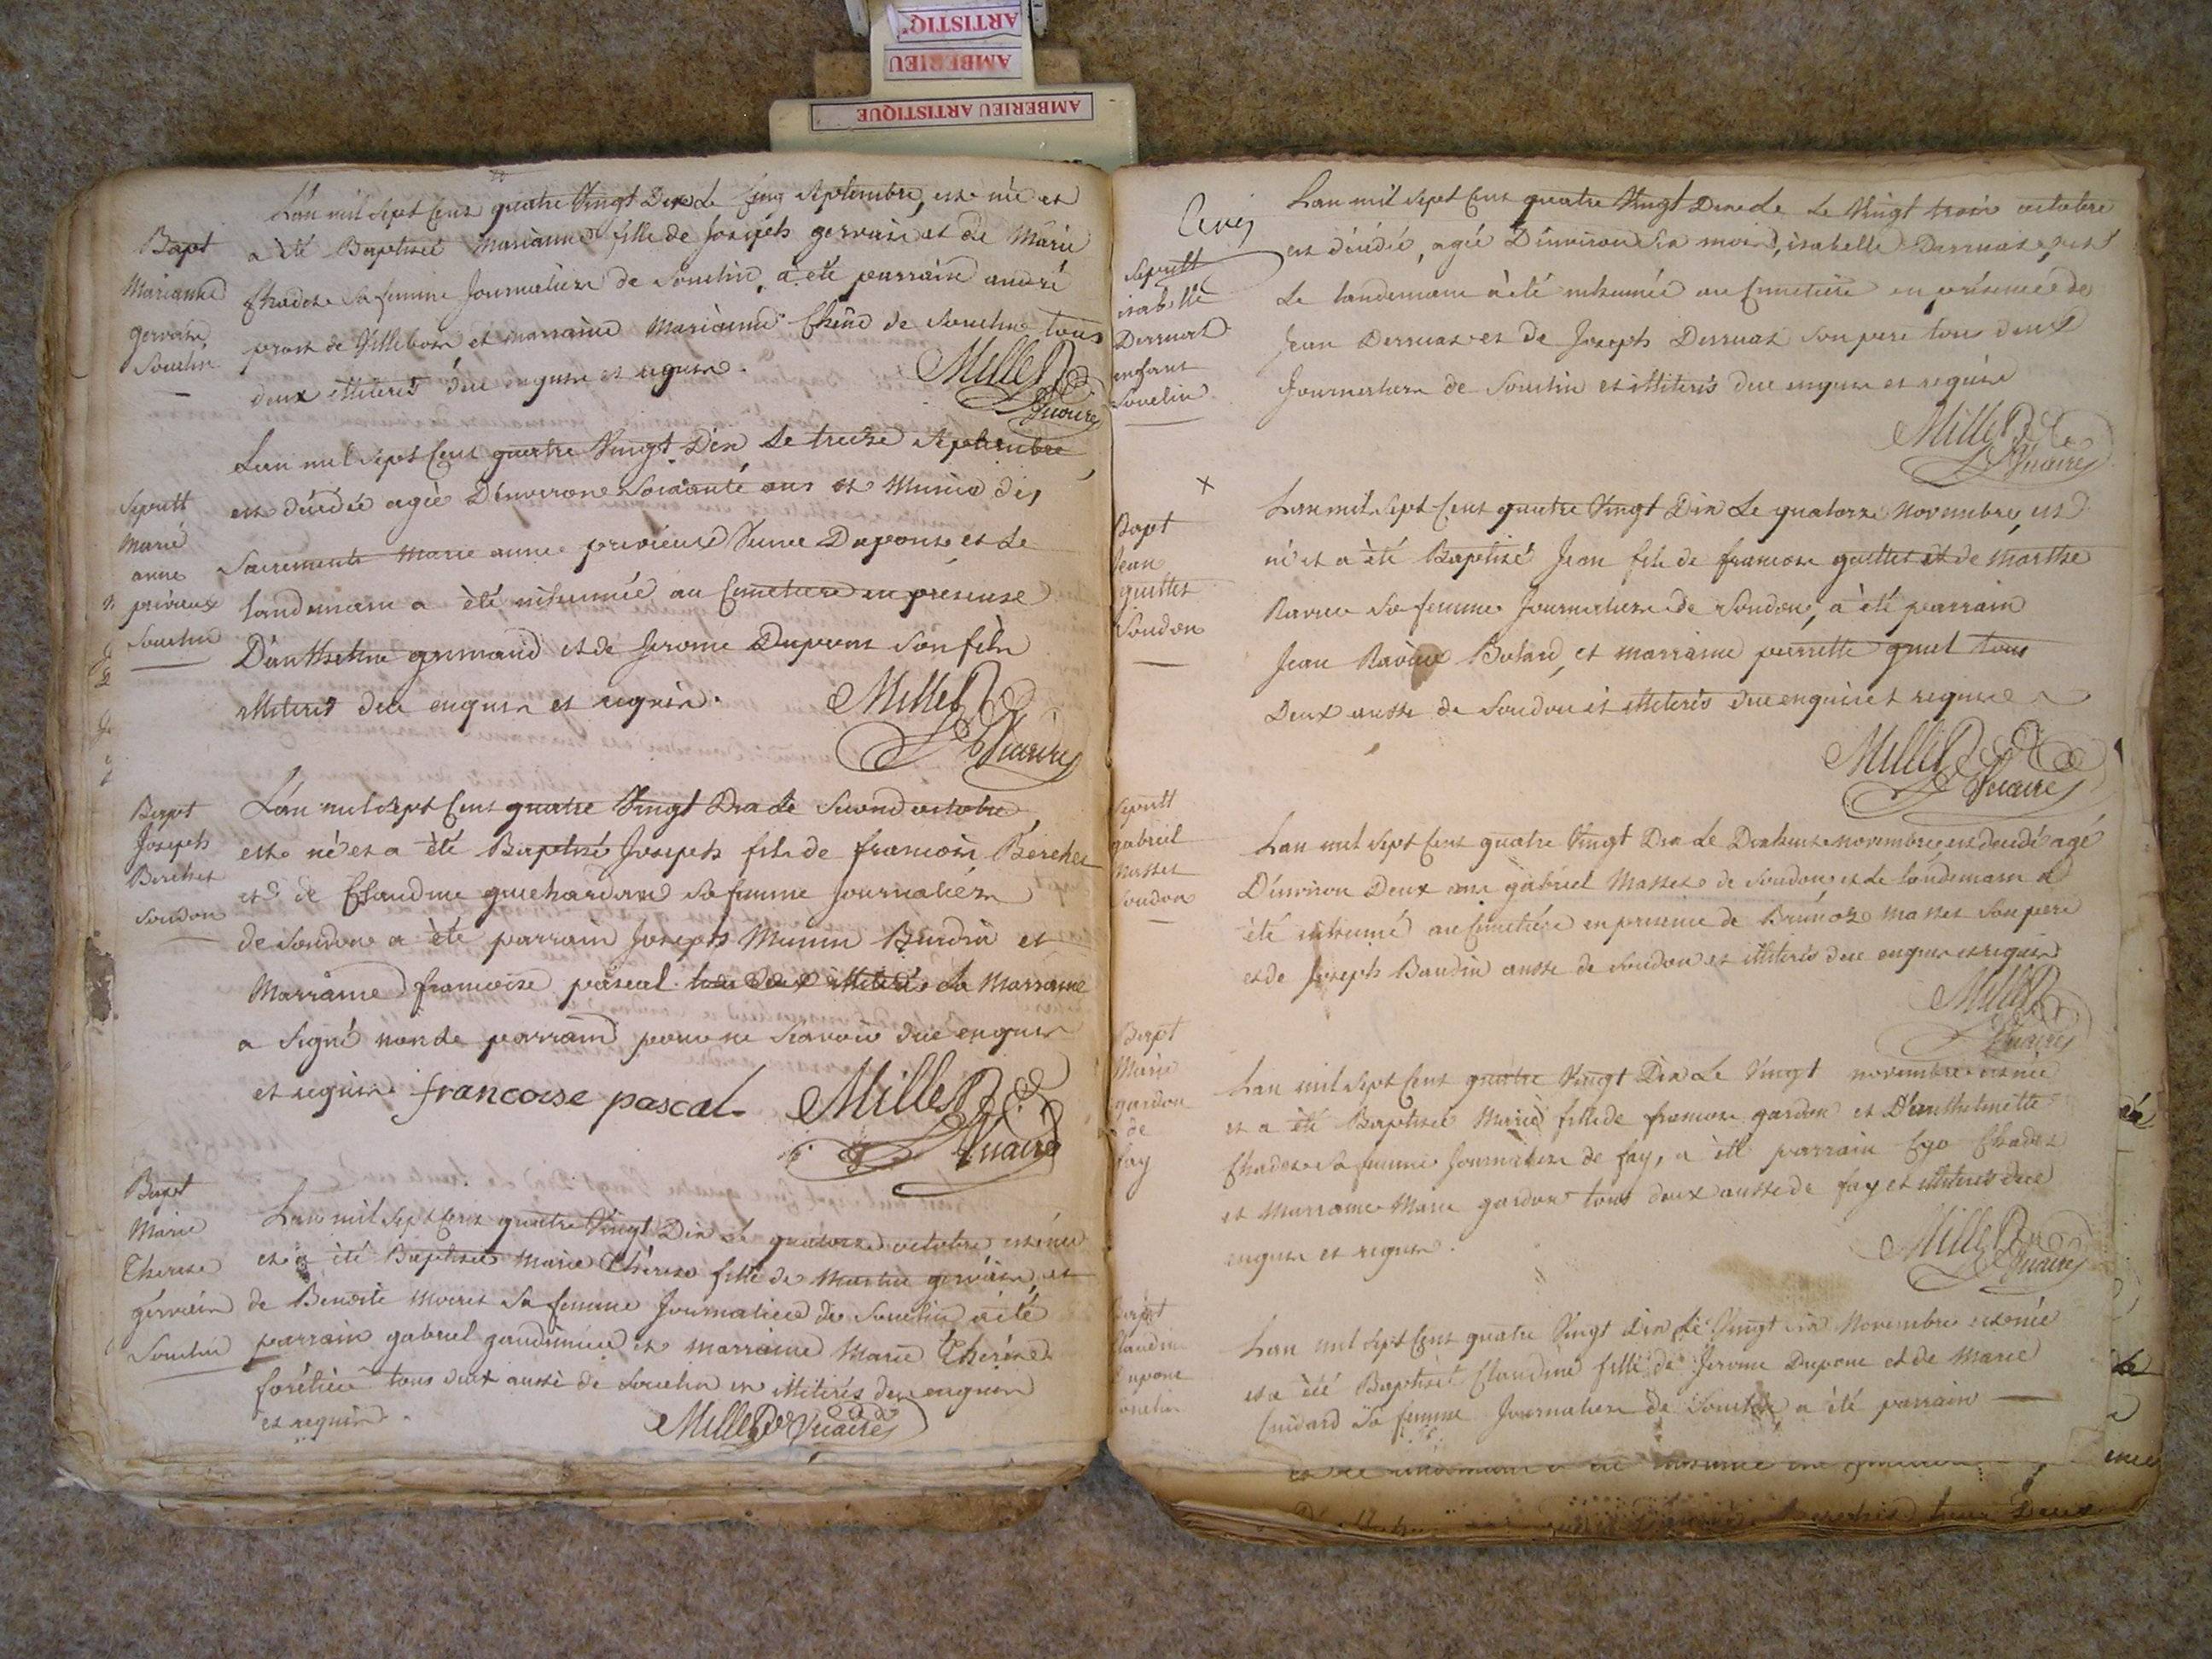 ARTISTIQ
AMBERIEU
AMBERIEU ARTISTIQUE
Bapt
Marianne
gervais
Souclin
L'an mil sept Cent quatre Vingt Dix Le Cinq Septembre, est née et
a été Baptisée Marianne fille de Joseph gervais et de Marie
Chadet sa femme Journaliers de Souclin, a été parrain andré
prost de Villebois et marraine Marianne Chêne de Souclin tous
deux illiterés due enquis et requis.
Millet
Vicaire
Sepult
Marie
anne
privieux
Souclin
Lan mil sept Cent quatre Vingt Dix Le treize Septembre
est décédée agée D'environ Soixante ans et Munie des
Sacrements Marie anne privieux Veuve Dupont et Le
landemain a été inhumée au Cimetiere en présence
D'anthelme grimand et de Jerome Dupont Son fils
illiterés due enquis et requis.
Millet
Vicaire
Bapt
Joseph
Berchet
Soudon
L'an mil sept Cent quatre Vingt Dix Le Second octobre
est né et a été Baptisé Joseph fils de francois Berchet
et de Claudine guichardan sa femme Journaliers
de Soudon a été parrain Joseph Munin Burdin et
Marraine francoise pascal tous deux illiterés La Marraine
a Signé non le parrain pour ne Scavoir due enquis
et requis francoise pascal Millet
Vicaire
Bapt
Marie
Therese
gervais
Souclin
Lan mil sept Cent quatre Vingt Dix Le quatorze octobre est née
et a été Baptisée Marie Thérese fille de Martin gervais et
de Benoite Moiret Sa femme Journaliers de Souclin a été
parrain gabriel et marraine Marie Thérese
tous deux aussi de Souclin et illiterés due enquis
et requis.
Millet Vicaire
Sepult
isabelle
Derruaz
enfant
Souclin
Lan mil sept Cent quatre Vingt Dix Le Vingt trois octobre
est décédée, agée D'environ Six mois, isabelle Derruaz, et
Le landemain a été inhumée au Cimetiere en présence de
Jean Derruaz et de Joseph Derruaz Son pere tous deux
Journaliers de Souclin et illiterés due enquis et requis
Millet
Vicaire
x
Bapt
Jean
guittet
Soudon
Lan mil sept Cent quatre Vingt Dix Le quatorze Novembre est
né et a été Baptisé Jean fils de francois guittet et de Marthe
Ravier sa femme Journaliers de Soudon, a été parrain
Jean Ravier et marraine perrette tous
Deux aussi de Soudon et illiterés due enquis et requis
Millet
Vicaire
Sepult
gabriel
Masset
Soudon
Lan mil sept Cent quatre Vingt Dix Le Dixhuit novembre est décédé agé
D'environ Deux ans gabriel Masset de Soudon et Le landemain a
été inhumé au Cimetiére en présence de Masset Son pere
et de Joseph Baudin aussi de Soudon et illiterés due enquis et requis
Millet
Vicaire
Bapt
Marie
gardon
de
fay
Lan mil sept Cent quatre Vingt Dix Le Vingt novembre est née
et a été Baptisée Marie fille de francois gardon et D'anthelmette
Chadet sa femme Journaliers de fay, a été parrain Chadet
et Marraine Marie gardon tous deux aussi de fay et illiterés due
enquis et requis.
Millet
Vicaire
Bapt
Claudine
Dupont
Souclin
Lan mil sept Cent quatre Vingt Dix Le Vingt six Novembre est née
et a été Baptisée Claudine fille de Jerome Dupont et de Marie
Sa femme Journaliers de Souclin, a été parrain